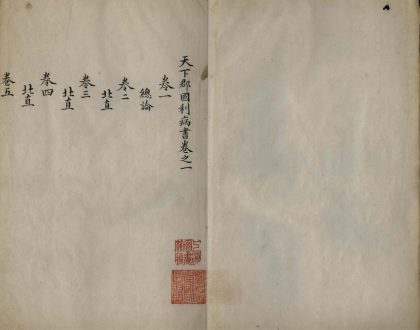 天下郡國利病書卷之一
卷一
總論
卷二
北直
卷三
北直
卷四
北直
卷五